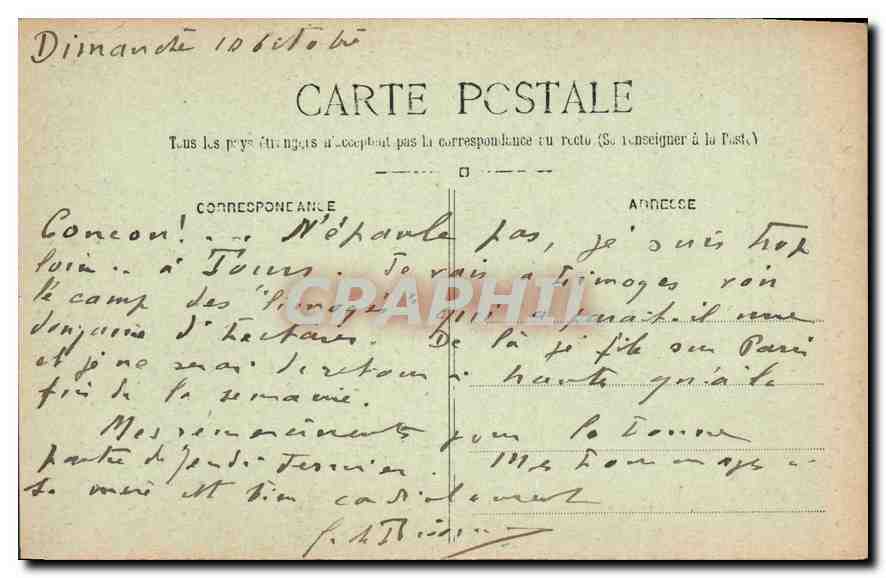 Dimanche 10 Octobre
CARTE POSTALE
Tous les pays étrangers n'acceptent pas la correspondance au recto (Se renseigner à la Poste)
CORRESPONDANCE
ADRESSE
N'épaule pas, je suis trop
loin .. à Tours. Je vais à Limoges voir
le camp des "limogés" qui a parait-il une
douzaine d'hectares. De là je file sur Paris
et je ne serai de retour à qu'à la
fin de la semaine.
Mes remerciements pour la bonne
partie de Jeudi dernier. Mes hommages à
ta mère et bien cordialement
GRAPHIL